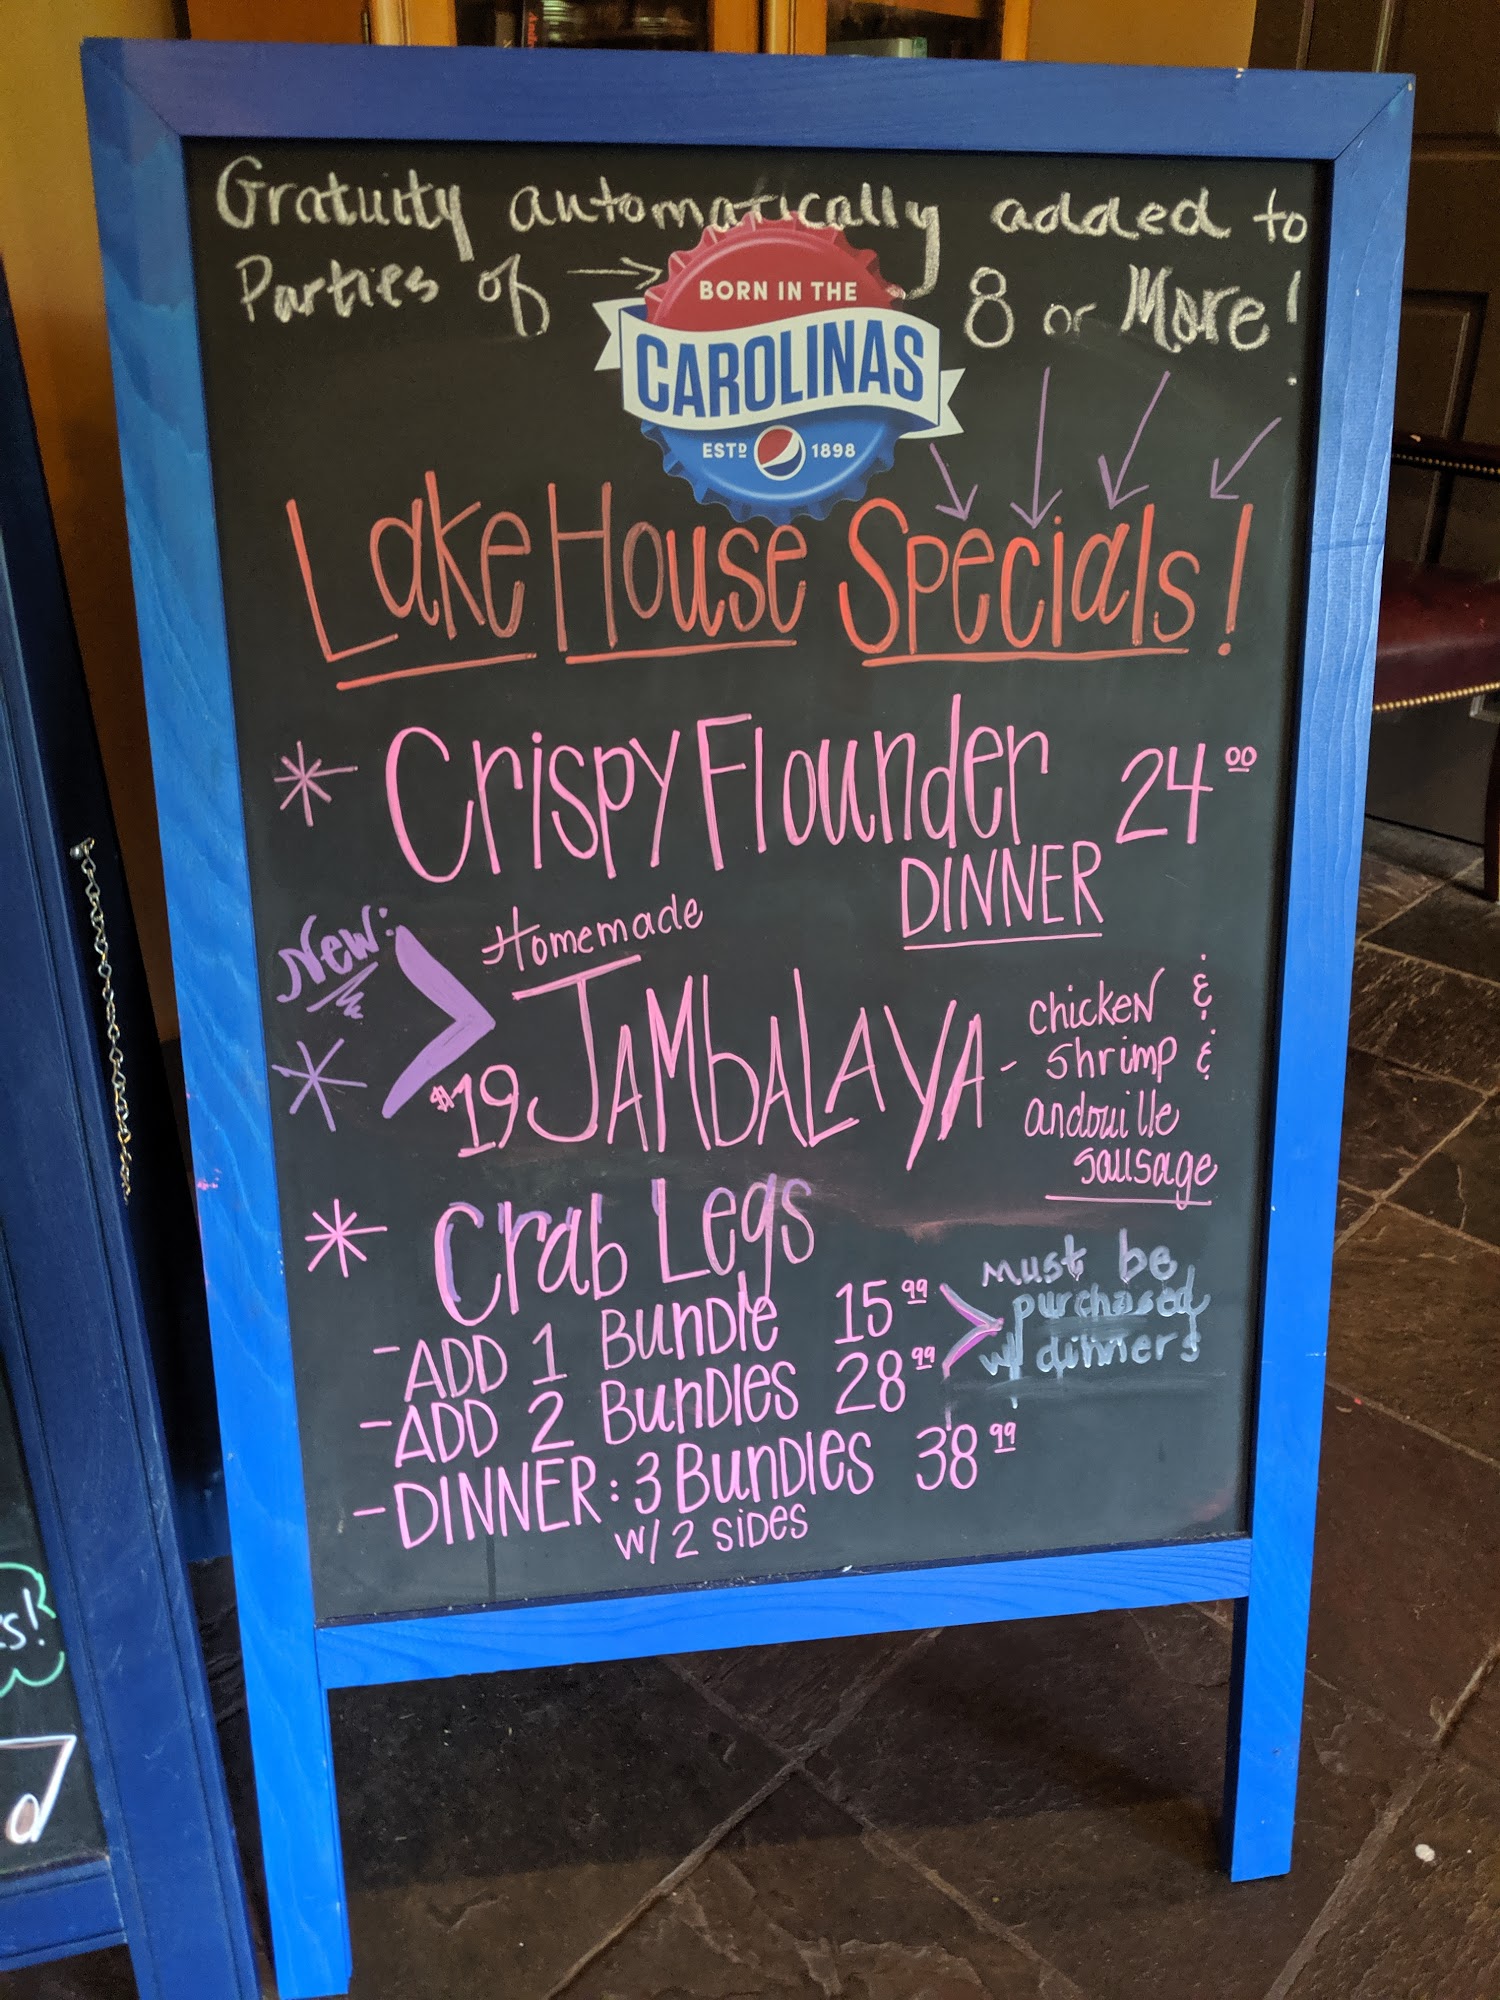 Gratuity automatically added to
Parties of → 8 or More!
BORN IN THE
CAROLINAS
ESTD 1898
Lake House Specials!
* Crispy Flounder 24.00
DINNER
New:
Homemade
* $19 JAMBALAYA - chicken &
shrimp &
andouille
sausage
* Crab Legs
- ADD 1 Bundle 15.99
- ADD 2 Bundles 28.99
must be
purchased
w/ dinners
- DINNER: 3 Bundles 38.99
w/ 2 sides
s!
d